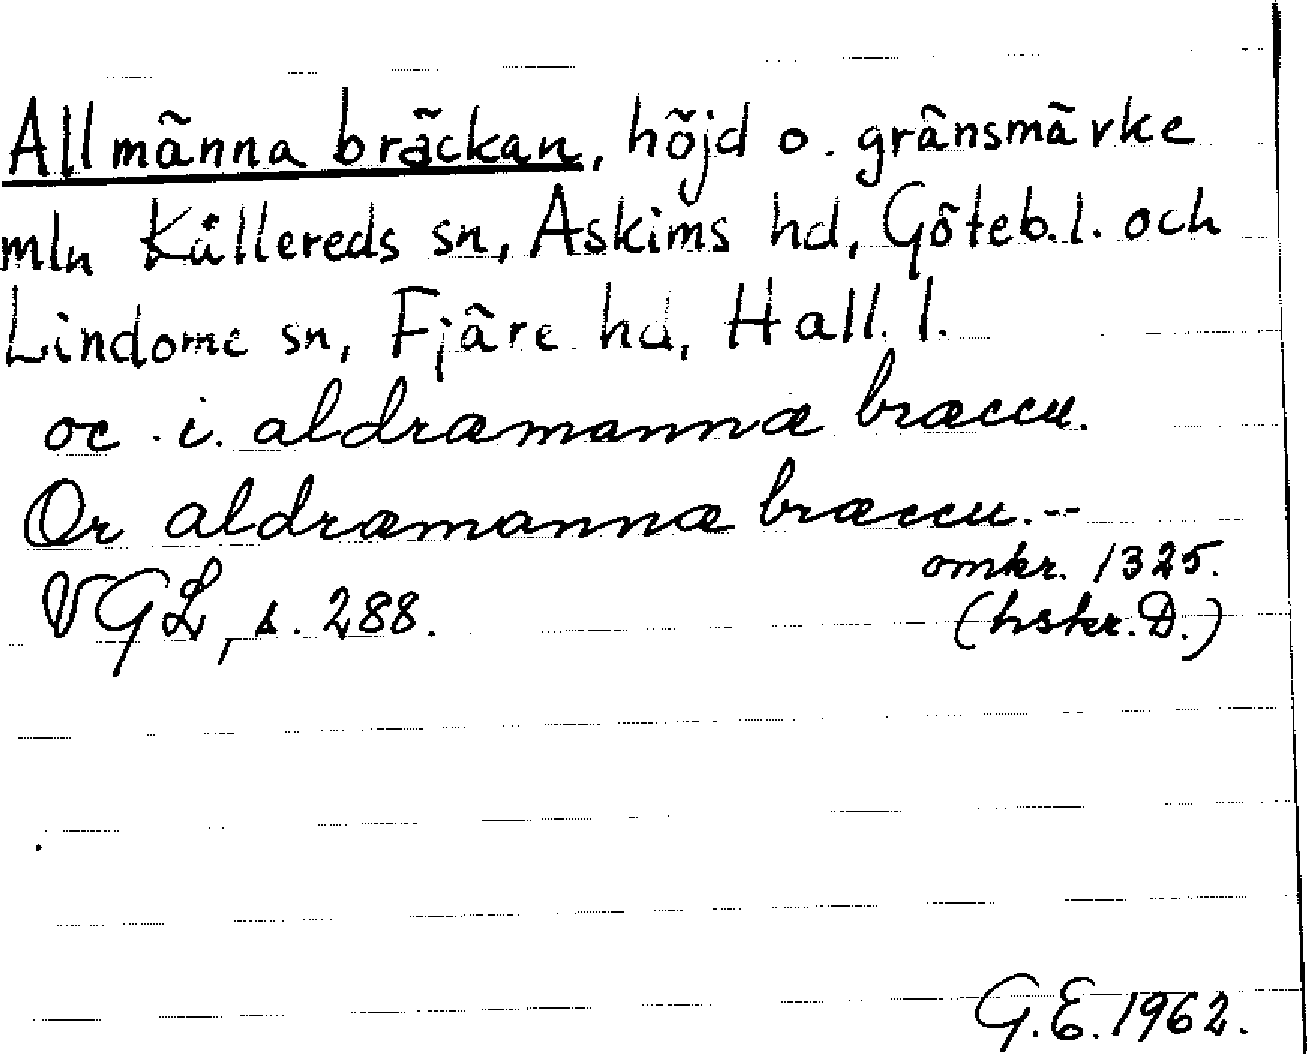 Allmänna bräckan, höjd o. gränsmärke
mln Kållereds sn, Askims hd, Göteb.l. och
Lindome sn, Fjäre hd, Hall. l.
oc . i. aldræmannæ bræccu.
Or aldræmannæ bræccu.--
omkr. 1325.
VGL, s. 288.
(hskr. D.)
G.E. 1962.